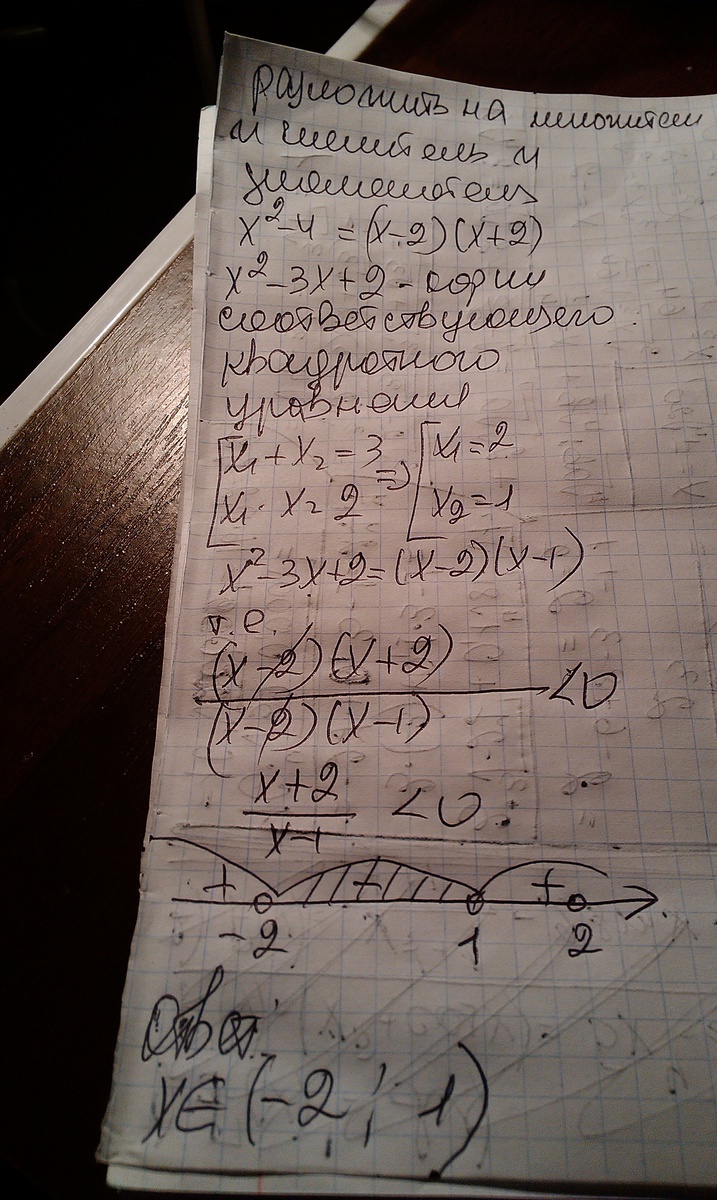 разложить на множители
и числитель и
знаменатель
x²-4 = (x-2)(x+2)
x²-3x+2 - корни
соответствующего
квадратного
уравнения
[x₁ + x₂ = 3 => [x₁ = 2
x₁ · x₂ 2 x₂ = 1
x²-3x+2 = (x-2)(x-1)
т.е.
(x-2)(x+2)
(x-2)(x-1) <0
x+2
x-1 <0
+ +
-2 1 2
Ответ:
x∈(-2; 1)